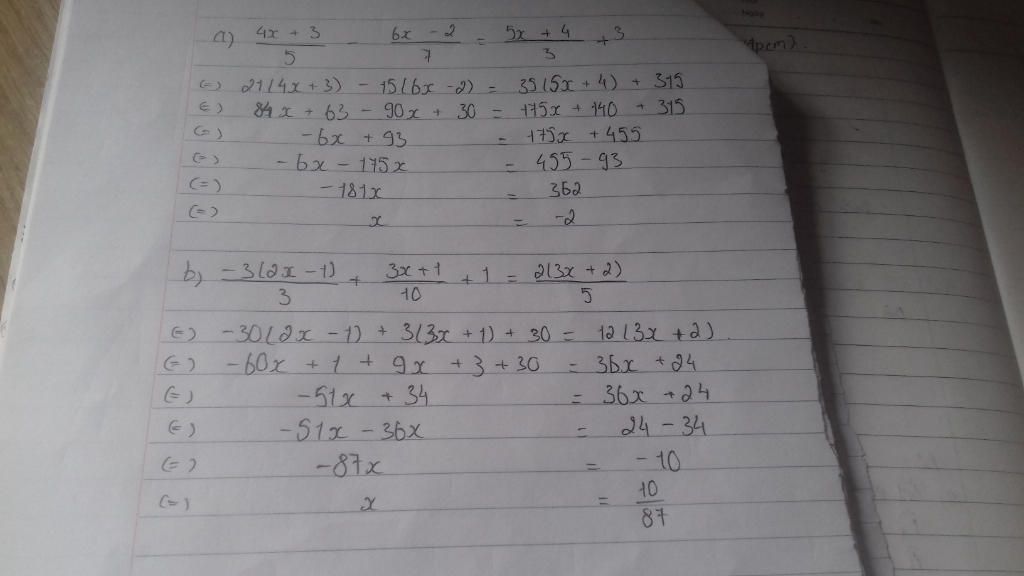 a) \frac{4x + 3}{5} - \frac{6x - 2}{7} = \frac{5x + 4}{3} + 3
(=) 21(4x + 3) - 15(6x - 2) = 35(5x + 4) + 315
(=) 84x + 63 - 90x + 30 = 175x + 140 + 315
(=) -6x + 93 = 175x + 455
(=) -6x - 175x = 455 - 93
(=) -181x = 362
(=) x = -2
b) \frac{-3(2x - 1)}{3} + \frac{3x + 1}{10} + 1 = \frac{2(3x + 2)}{5}
(=) -30(2x - 1) + 3(3x + 1) + 30 = 12(3x + 2)
(=) -60x + 1 + 9x + 3 + 30 = 36x + 24
(=) -51x + 34 = 36x + 24
(=) -51x - 36x = 24 - 34
(=) -87x = -10
(=) x = \frac{10}{87}